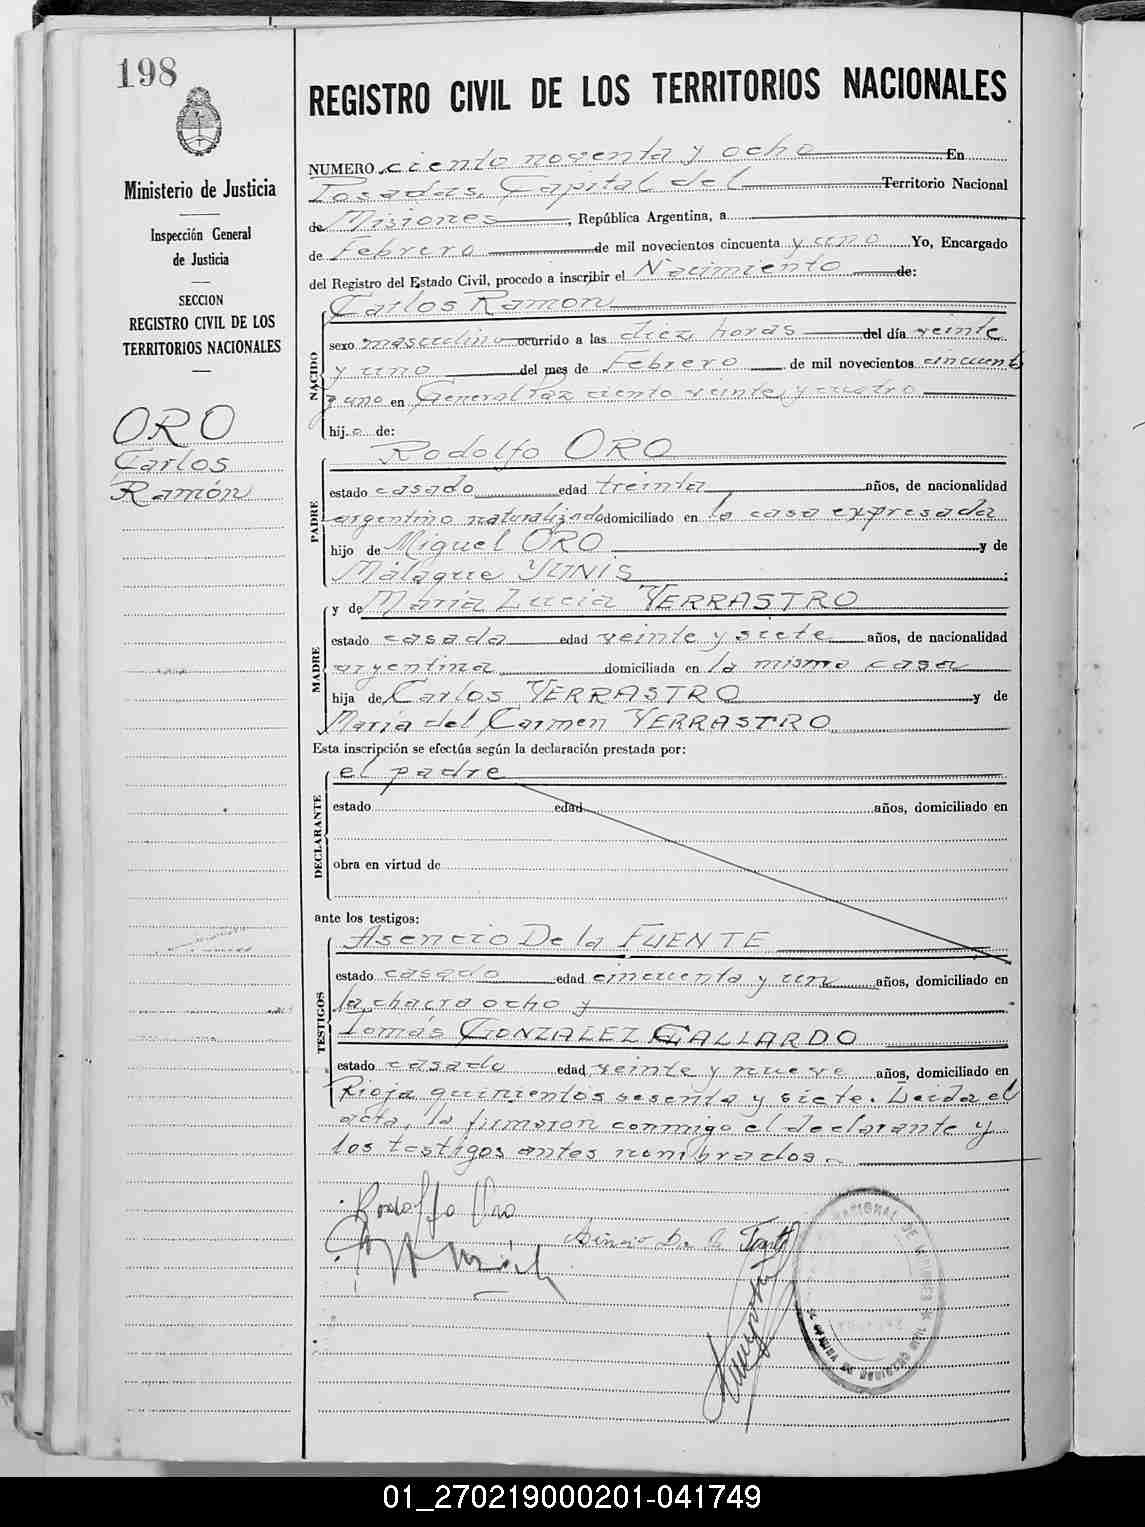 198
Ministerio de Justicia
Inspección General
de Justicia
SECCION
REGISTRO CIVIL DE LOS
TERRITORIOS NACIONALES
ORO
Carlos
Ramón
REGISTRO CIVIL DE LOS TERRITORIOS NACIONALES
NUMERO ciento noventa y ocho En
Posadas, Capital del Territorio Nacional
de Misiones, República Argentina, a
de Febrero de mil novecientos cincuenta y uno Yo, Encargado
del Registro del Estado Civil, procedo a inscribir el Nacimiento de:
NACIDO
Carlos Ramon
sexo masculino ocurrido a las diez horas del día veinte
y uno del mes de Febrero de mil novecientos cincuenta
y uno en General Paz ciento veinte y cuatro
hijo de:
PADRE
Rodolfo ORO
estado casado edad treinta años, de nacionalidad
argentino naturalizado domiciliado en la casa expresada
hijo de Miguel ORO y de
Málaque YUNIS;
MADRE
y de María Lucia VERRASTRO
estado casada edad veinte y siete años, de nacionalidad
argentina domiciliada en la misma casa
hija de Carlos VERRASTRO y de
María del Carmen VERRASTRO
Esta inscripción se efectúa según la declaración prestada por:
DECLARANTE
el padre
estado edad años, domiciliado en
obra en virtud de
ante los testigos:
TESTIGOS
Asencio De la FUENTE
estado casado edad cincuenta y un años, domiciliado en
la chacra ocho y
Tomás GONZALEZ GALLARDO
estado casado edad veinte y nueve años, domiciliado en
Rioja quinientos sesenta y siete. Leida el
acta, la firmaron conmigo el declarante y
los testigos antes nombrados.
Rodolfo Oro
01_270219000201-041749